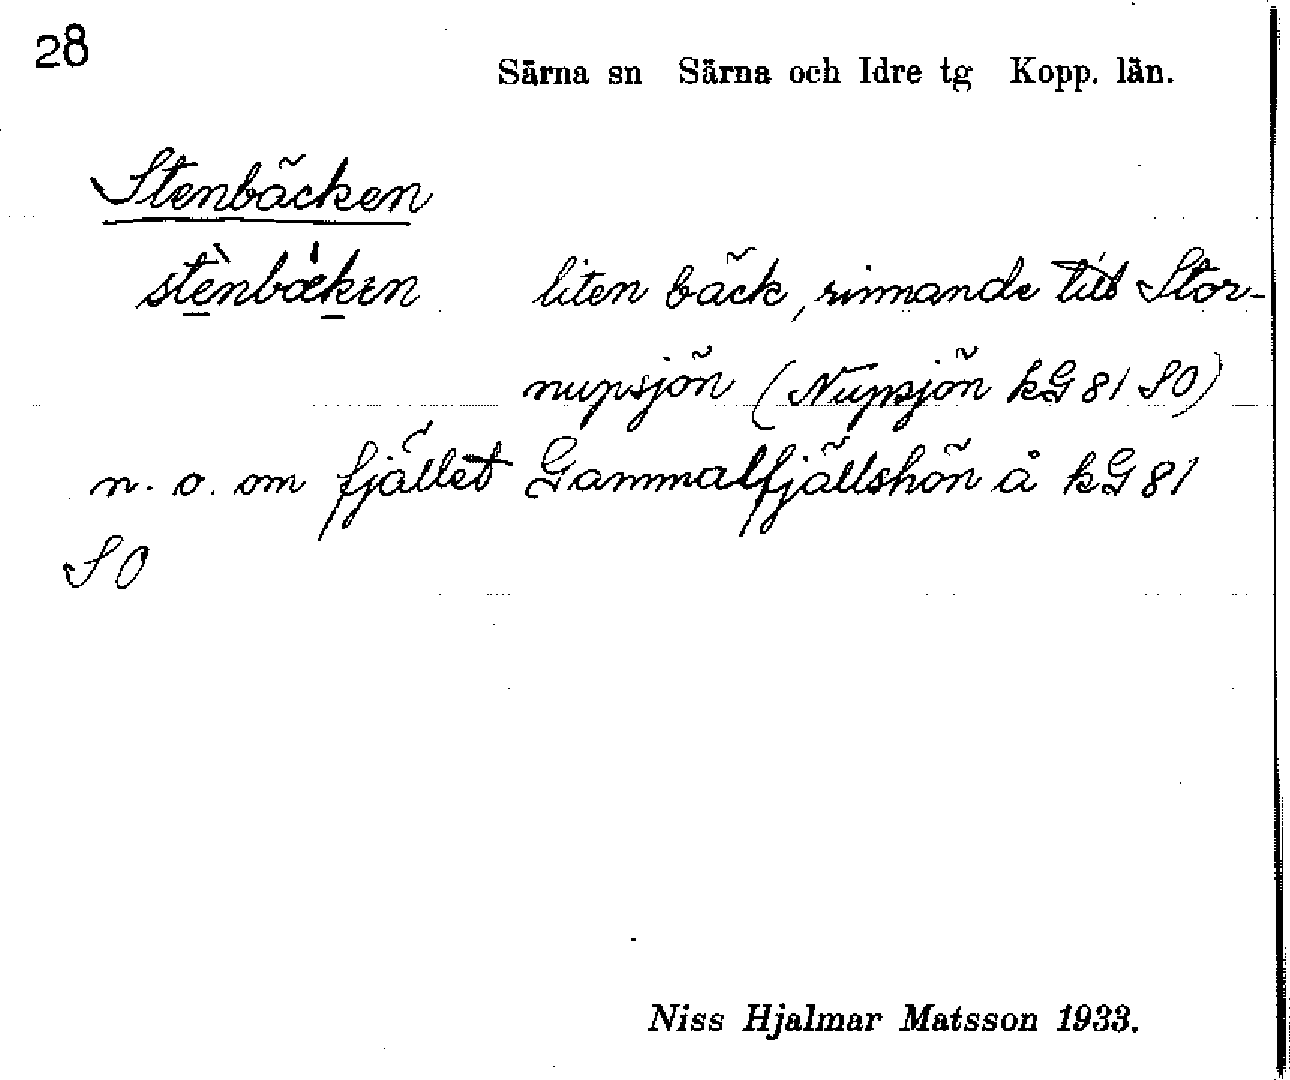 28
Särna sn Särna och Idre tg Kopp. län.
Stenbäcken
stènbæken liten bäck, rinnande till Stor-
nupsjön (Nupsjön kG 81 SO)
n. o. om fjället Gammalfjällshön å kG 81
SO
Niss Hjalmar Matsson 1933.